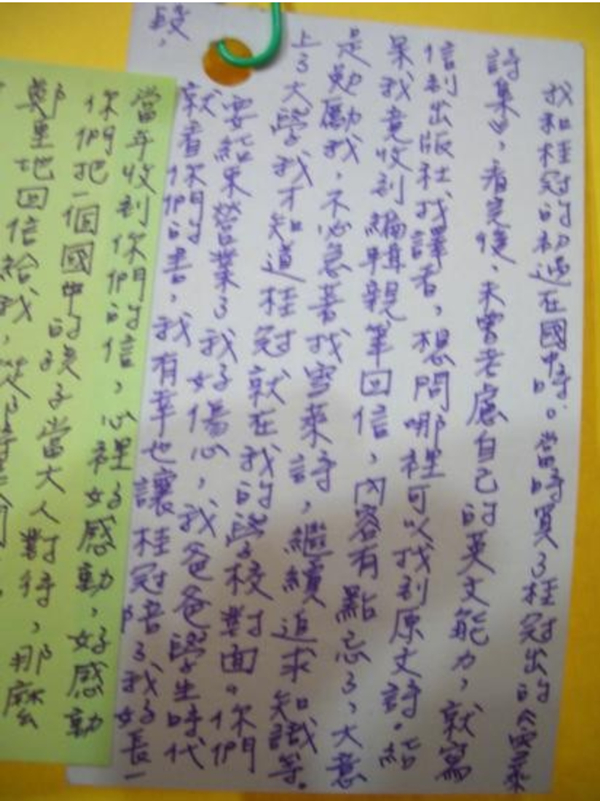 我和桂冠的初遇在國中時。當時買了桂冠出的《雪萊
詩集》，看完後，未曾考慮自己的英文能力，就寫
信到出版社找譯者，想問哪裡可以找到原文詩。結
果我竟收到編輯親筆回信，內容有點忘了，大意
是勉勵我，不必急著找雪萊詩，繼續追求知識等。
上了大學我才知道桂冠就在我的學校對面。你們
要結束營業了我好傷心，我爸爸學生時代
就看你們的書，我有幸也讓桂冠陪了我好長一
段，
當年收到你們的信，心裡好感動，好感動
你們把一個國中的孩子當大人對待，那麼
鄭重地回信給我，